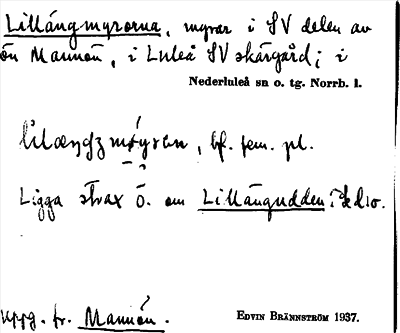 Lillängmyrorna, myrar i SV delen av
ön Mannön, i Luleå SV skärgård; i
Nederluleå sn o. tg. Norrb. l.
bf. fem. pl.
Ligga strax Ö. om Lillängudden
Uppg. fr. Mannön.
EDVIN BRÄNNSTRÖM 1937.